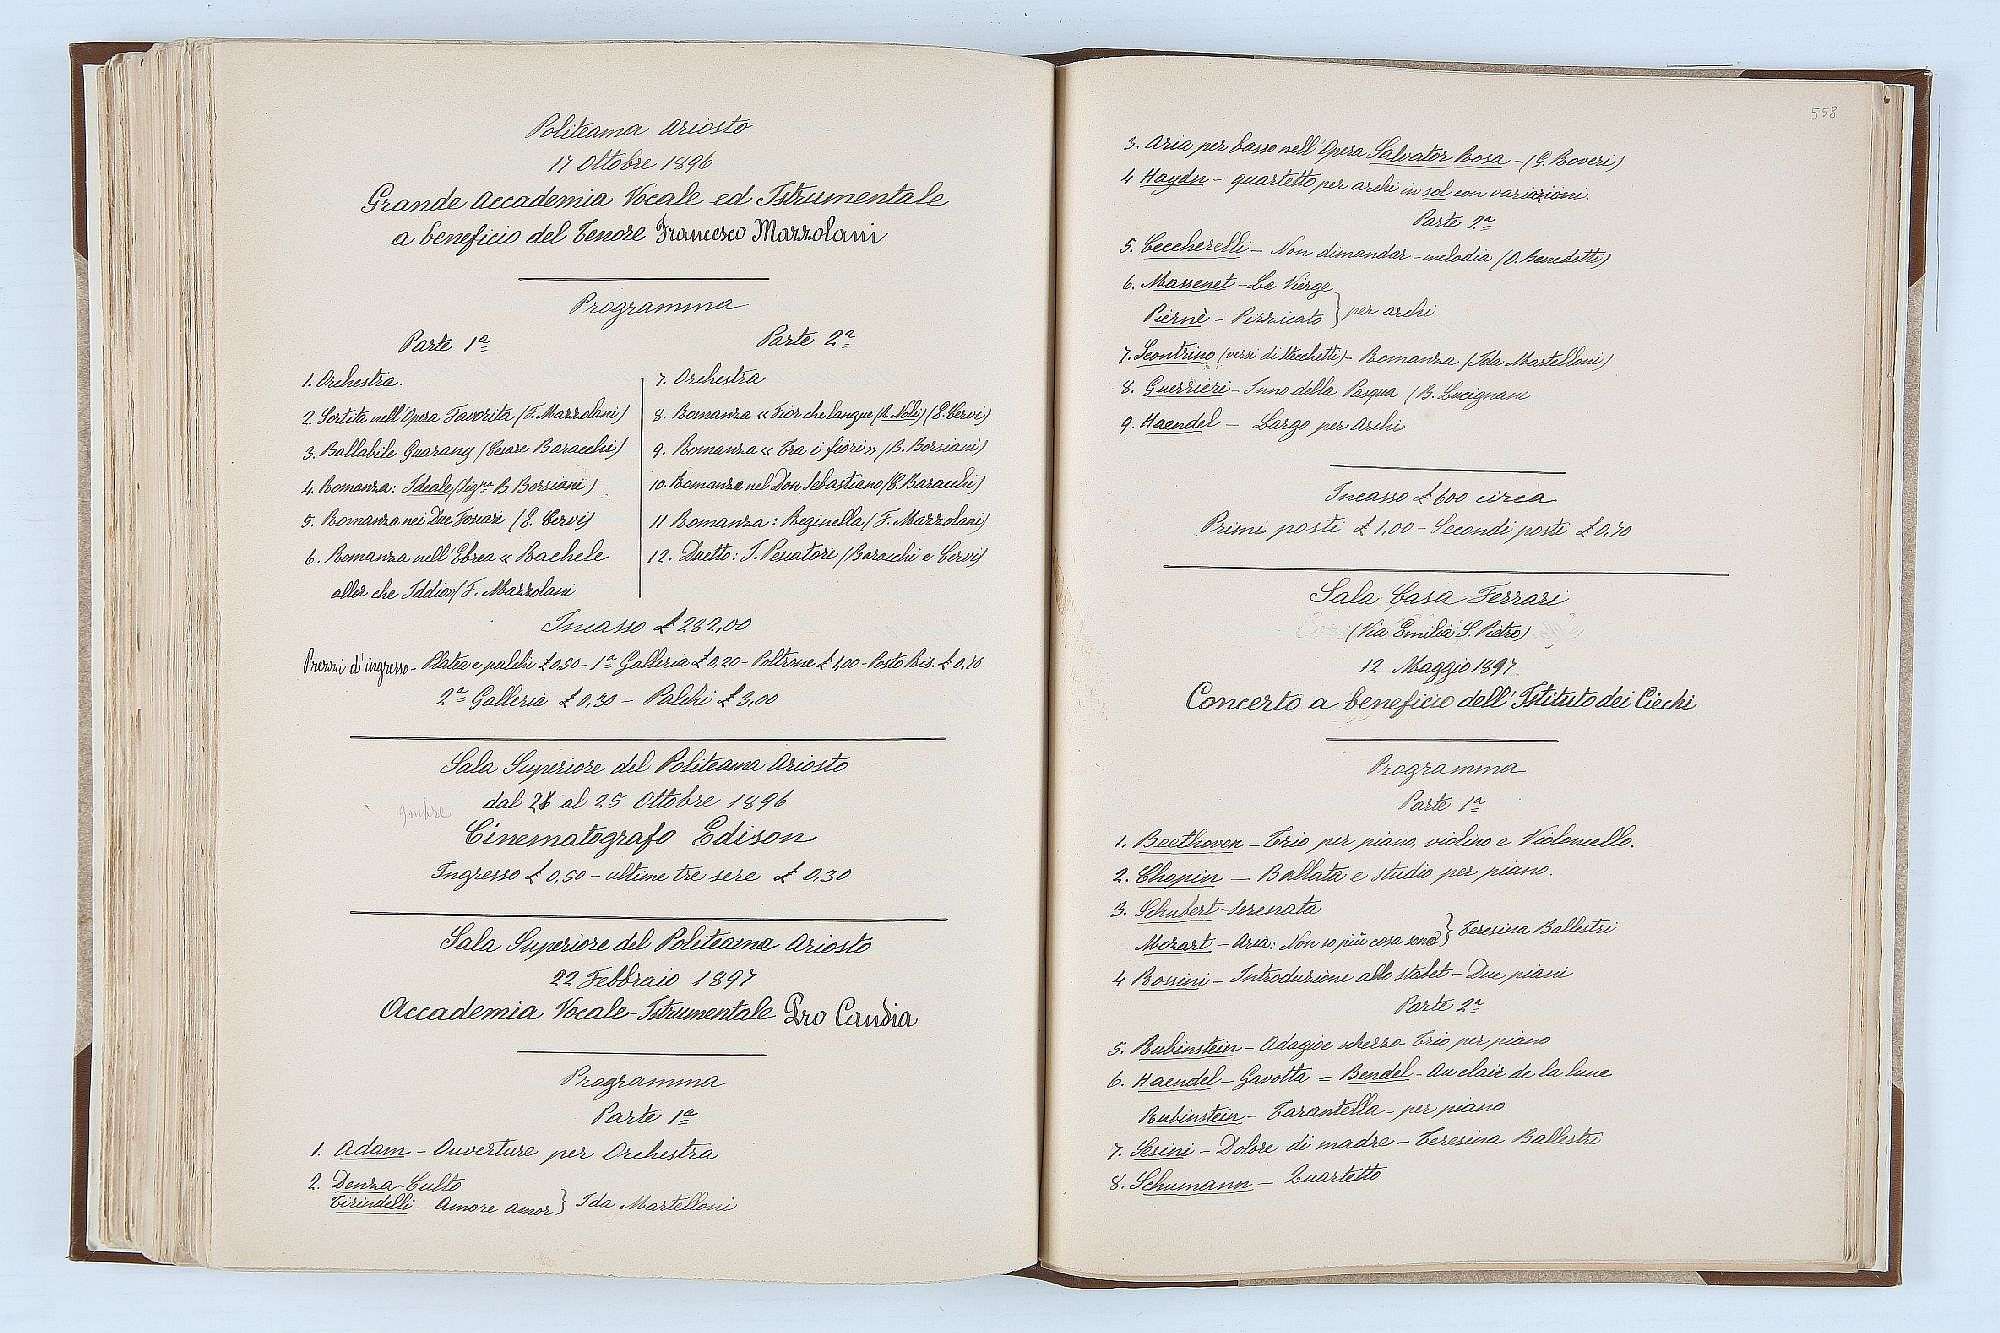 Politeama Ariosto
17 Ottobre 1896
Grande Accademia Vocale ed Istrumentale
a beneficio del Tenore Francesco Mazzolani
Programma
Parte 1ª
1. Orchestra.
2. Sortita nell'Opera Favorita (F. Mazzolani)
3. Ballabile Guarany (Cesare Baracchi)
4. Romanza: Ideale (Sigra B. Borsiani)
5. Romanza nei Due Foscari (E. Cervi)
6. Romanza nell'Ebrea « Rachele
allor che Iddio» (F. Mazzolani
Parte 2ª
7. Orchestra
8. Romanza « Fior che langue (A. Noli) (E. Cervi)
9. Romanza « Tra i fiori » (B. Borsiani)
10. Romanza nel Don Sebastiano (C. Baracchi)
11 Romanza: Reginella (F. Mazzolani)
12. Duetto: I. Pescatori (Baracchi e Cervi)
Incasso £ 282,00
Prezzi d'ingresso - Platea e palchi £ 0,50 - 1ª Galleria £ 0,20 - Poltrone £ 1,00 - Posto Ris. £ 0,70
2ª Galleria £ 0,30 - Palchi £ 3,00
Sala Superiore del Politeama Ariosto
dal al 25 Ottobre 1896
Cinematografo Edison
Ingresso £ 0,50 - ultime tre sere £ 0,30
Sala Superiore del Politeama Ariosto
22 Febbraio 1897
Accademia Vocale-Istrumentale Pro Candia
Programma
Parte 1ª
1. Adam - Ouverture per Orchestra
2. Denza - Culto
Tirindelli Amore amor } Ida Martelloni
558
3. Aria per basso nell'Opera Salvator Rosa - (G. Boveri)
4 Haydn - quartetto per archi in sol con variazioni.
Parte 2ª
5. Ceccherelli - Non dimandar - melodia (O. Benedetti)
6. Massenet - La Vierge
Piernè - Pizzicato } per archi
7. Scontrino (versi di Stecchetti) - Romanza (Ida Martelloni)
8. Guerrieri - Inno della Pasqua (B. Lucignani
9. Haendel - Largo per Archi
Incasso £ 600 circa
Primi posti £ 1,00 - Secondi posti £ 0,70
Sala Casa Ferrari
(Via Emilia S. Pietro)
12 Maggio 1897.
Concerto a beneficio dell'Istituto dei Ciechi
Programma
Parte 1ª
1. Beethoven - Trio per piano, violino e Violoncello.
2. Chopin - Ballata e studio per piano.
3. Schubert - Serenata
Mozart - Aria: Non so più cosa sono } Teresina Ballestri
4 Rossini - Introduzione allo stabet - Due piani
Parte 2ª
5. Rubinstein - Adagio e scherzo Trio per piano
6. Haendel - Gavotta = Bendel - Au clair de la lune
Rubinstein - Tarantella - per piano
7. Sesini - Dolore di madre - Teresina Ballestri
8. Schumann - Quartetto